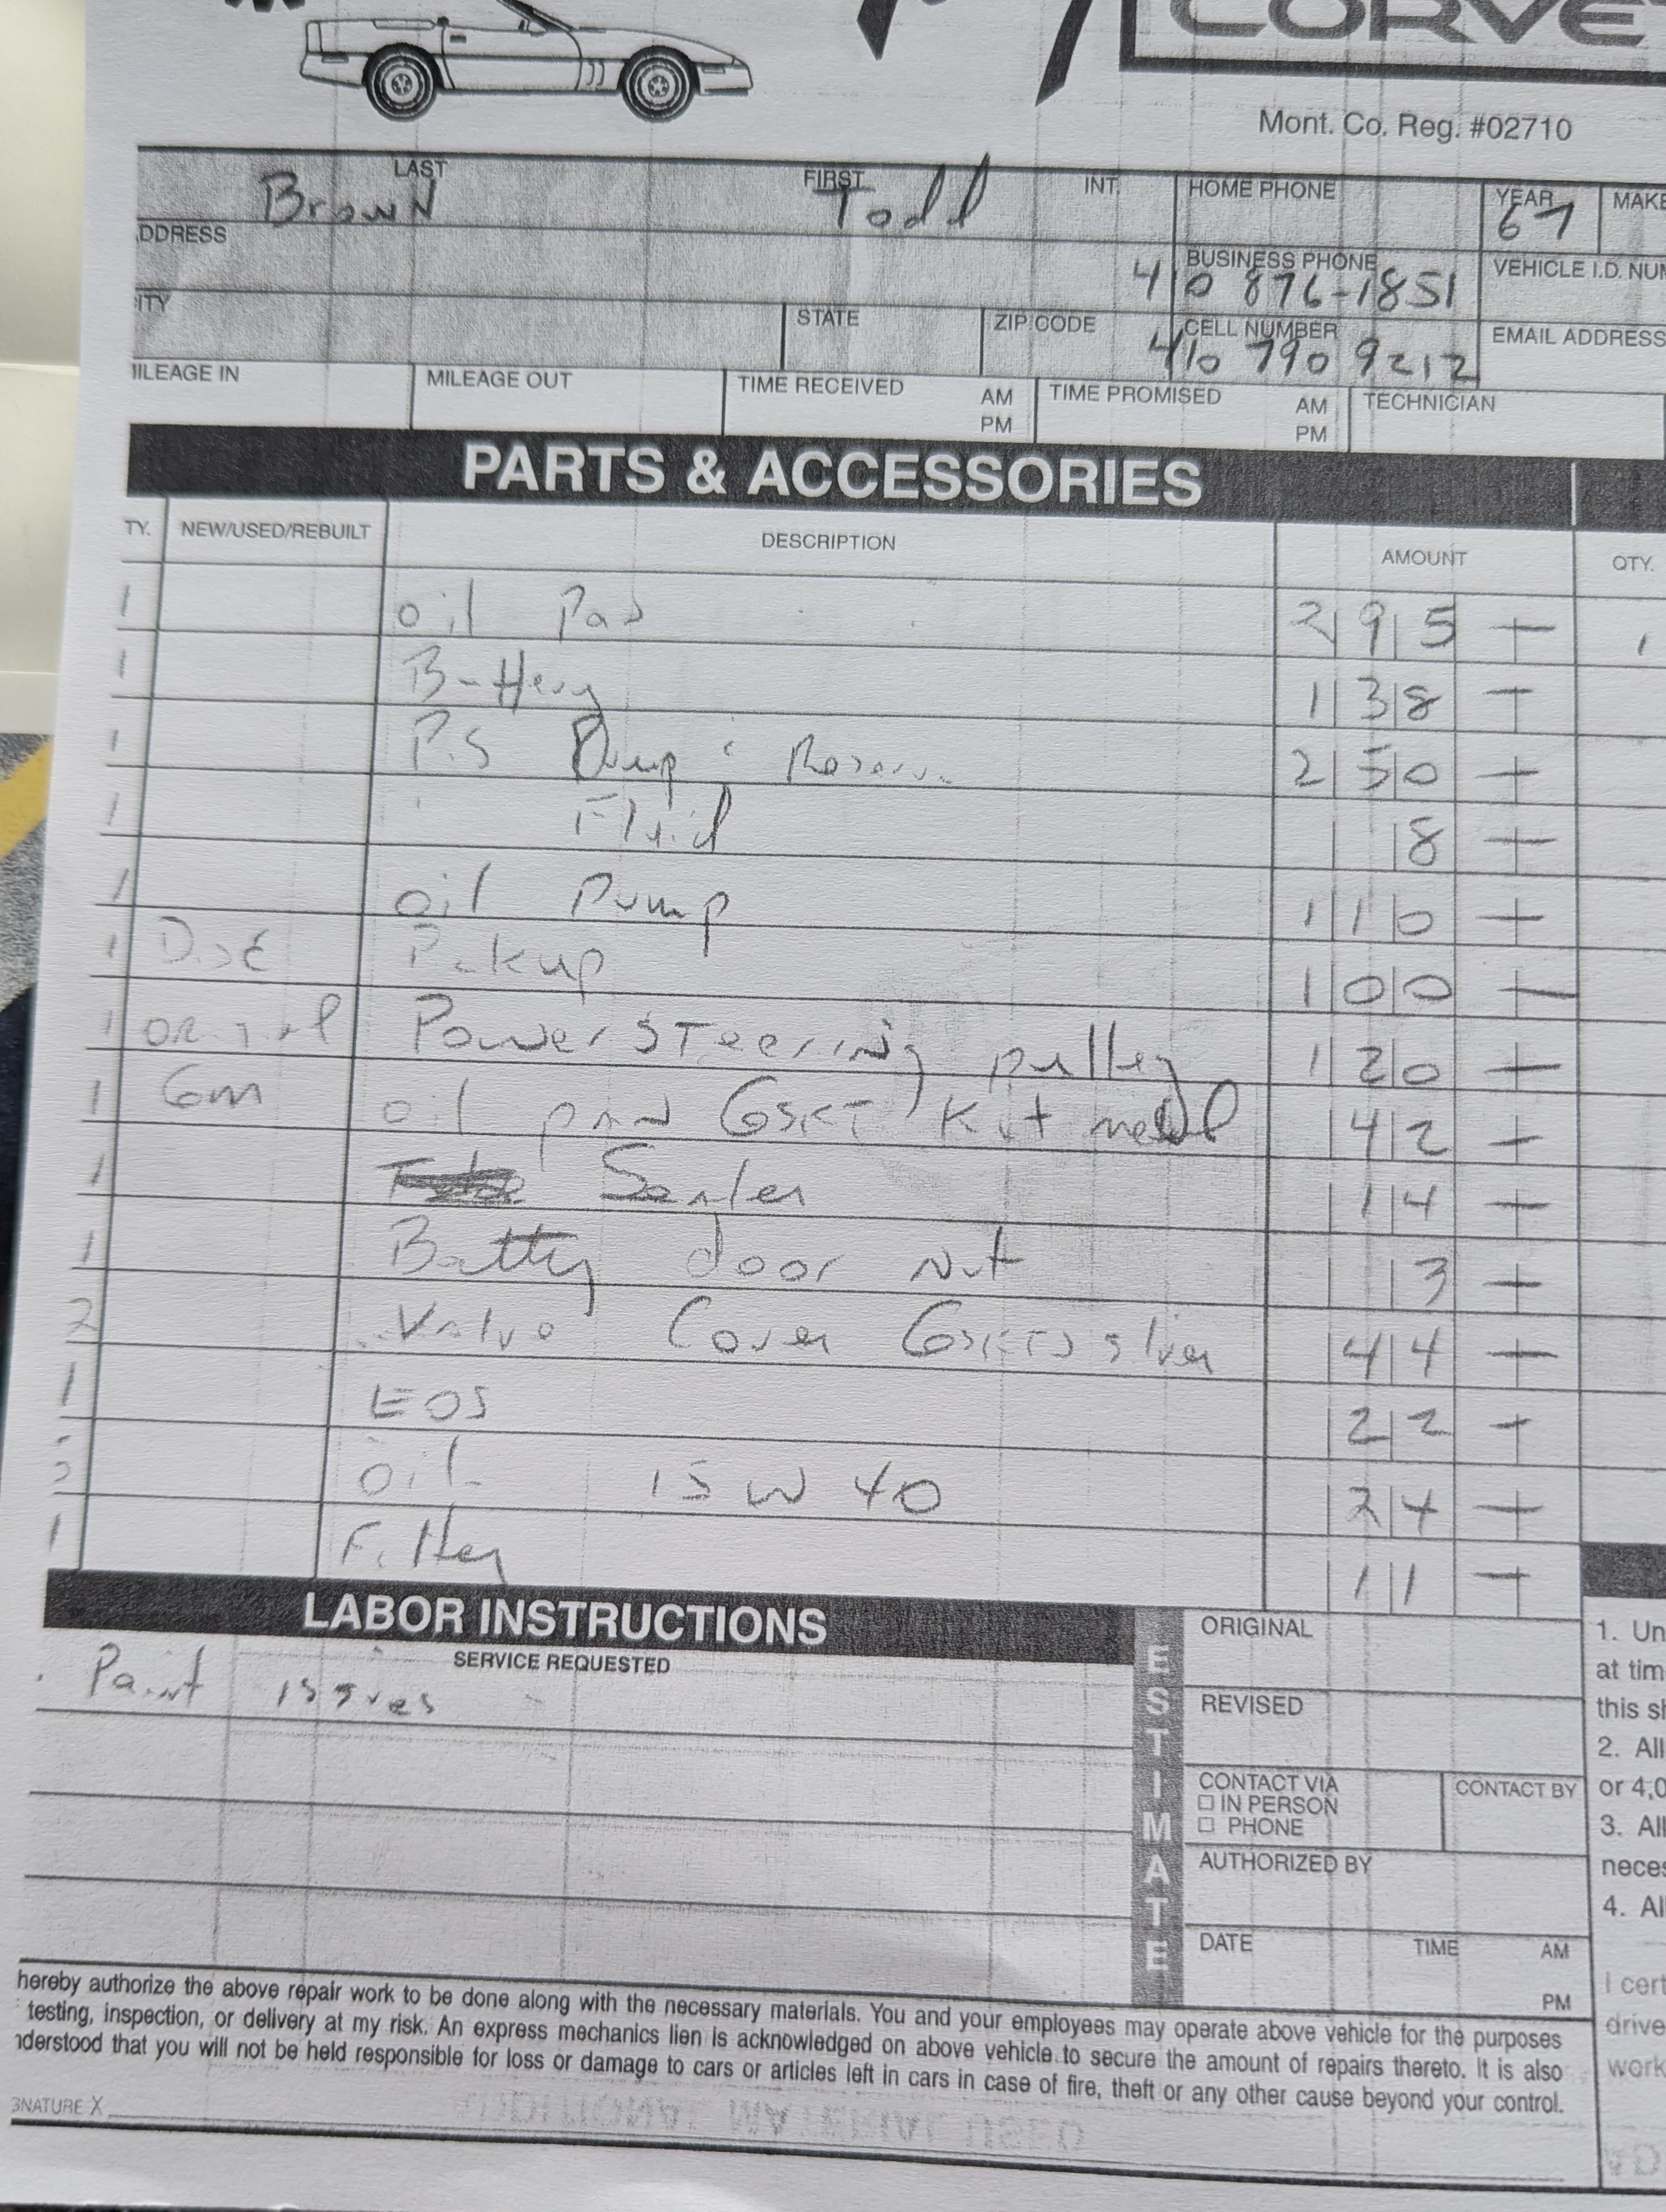 CORVE
Mont. Co. Reg. #02710
LAST FIRST INT. HOME PHONE YEAR MAKE
Brown Todd 67
DDRESS BUSINESS PHONE VEHICLE I.D. NUM
410 876-1851
ITY STATE ZIP CODE CELL NUMBER EMAIL ADDRESS
410 790 9212
MILEAGE IN MILEAGE OUT TIME RECEIVED AM PM TIME PROMISED AM PM TECHNICIAN
PARTS & ACCESSORIES
TY. NEW/USED/REBUILT DESCRIPTION AMOUNT QTY.
1 oil Pan 295 —
1 Battery 138 —
1 P.S Pump : 250 —
1 " Fluid 8 —
1 oil Pump 110 —
1 Pickup 100 —
1 Power STeering pulley 120 —
1 Gm oil pan GSKT Kit metal 42 —
1 Sealer 14 —
1 Battry door Nut 3 —
2 Valve Cover GSKTS 44 —
1 EOS 22 —
oil 15 W 40 24 —
1 Filter 11 —
LABOR INSTRUCTIONS
SERVICE REQUESTED
Paint issues
ESTIMATE
ORIGINAL
REVISED
CONTACT VIA
IN PERSON
PHONE
CONTACT BY
AUTHORIZED BY
DATE TIME AM
PM
1. Un
at tim
this sh
2. All
or 4,0
3. All
neces
4. Al
I cert
drive
work
hereby authorize the above repair work to be done along with the necessary materials. You and your employees may operate above vehicle for the purposes
testing, inspection, or delivery at my risk. An express mechanics lien is acknowledged on above vehicle to secure the amount of repairs thereto. It is also
nderstood that you will not be held responsible for loss or damage to cars or articles left in cars in case of fire, theft or any other cause beyond your control.
GNATURE X